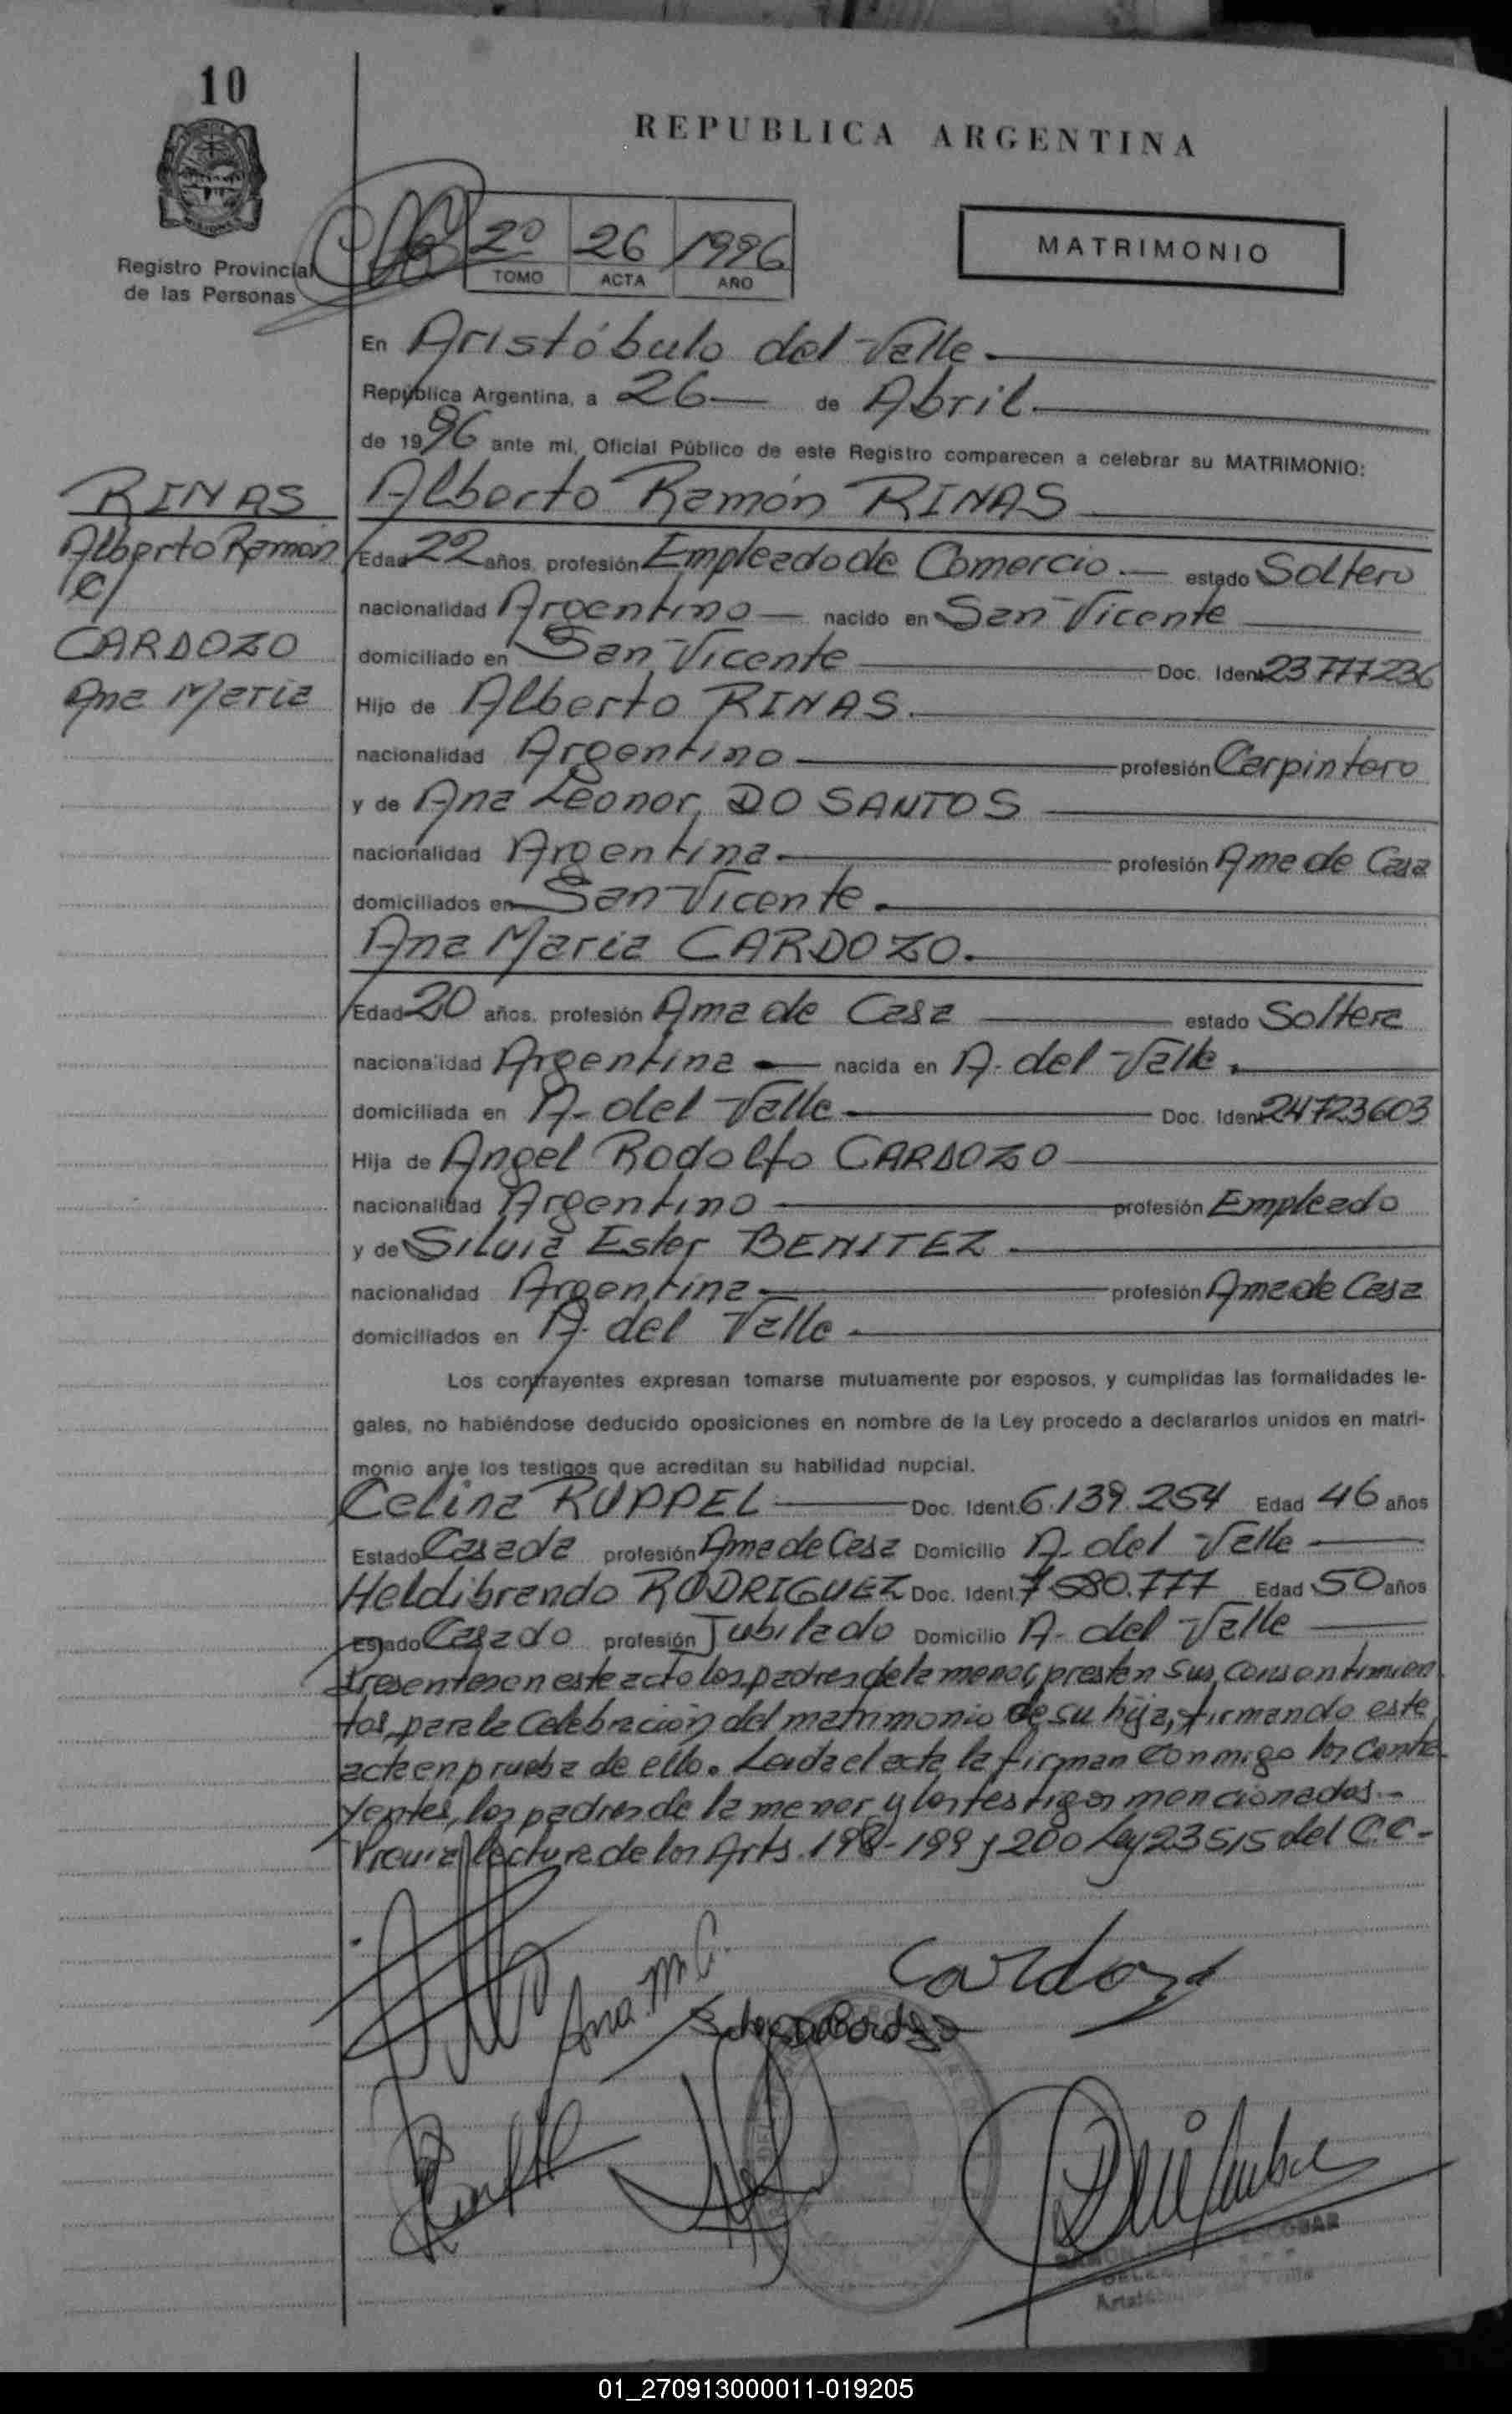 10
REPUBLICA ARGENTINA
MISIONES
Registro Provincial
de las Personas
2º 26 1996
TOMO ACTA AÑO
MATRIMONIO
En Aristóbulo del Valle.
República Argentina, a 26 de Abril.
de 1996 ante mi, Oficial Público de este Registro comparecen a celebrar su MATRIMONIO:
RINAS
Alberto Ramón
c/
CARDOZO
Ana Maria
Alberto Ramón RINAS
Edad 22 años, profesión Empleado de Comercio.- estado Soltero
nacionalidad Argentino nacido en San Vicente
domiciliado en San Vicente Doc. Ident 23777236
Hijo de Alberto RINAS.
nacionalidad Argentino profesión Carpintero
y de Ana Leonor DO SANTOS
nacionalidad Argentina. profesión Ama de Casa
domiciliados en San Vicente.
Ana Maria CARDOZO.
Edad 20 años, profesión Ama de Casa estado Soltera
nacionalidad Argentina nacida en A. del Valle.
domiciliada en A. del Valle Doc. Ident 24723603
Hija de Angel Rodolfo CARDOZO
nacionalidad Argentino profesión Empleado
y de Silvia Ester BENITEZ
nacionalidad Argentina profesión Ama de Casa
domiciliados en A. del Valle
Los contrayentes expresan tomarse mutuamente por esposos, y cumplidas las formalidades le-
gales, no habiéndose deducido oposiciones en nombre de la Ley procedo a declararlos unidos en matri-
monio ante los testigos que acreditan su habilidad nupcial.
Celina RUPPEL Doc. Ident. 6.139.254 Edad 46 años
Estado Casada profesión Ama de Casa Domicilio A. del Valle
Heldibrando RODRIGUEZ Doc. Ident. 7580.777 Edad 50 años
Estado Casado profesión Jubilado Domicilio A. del Valle
Presentes en este acto los padres de la menor, prestan sus consentimien
tos, para la Celebración del matrimonio de su hija, firmando este
acta en prueba de ello. Leida el acta, la firman conmigo los Contra
yentes, los padres de la menor y los testigos mencionados.-
Previa lectura de los Arts. 198-199 y 200 Ley 23515 del C.C.-
Ana. M. C.
Cardozo
ESCOBAR
01_270913000011-019205